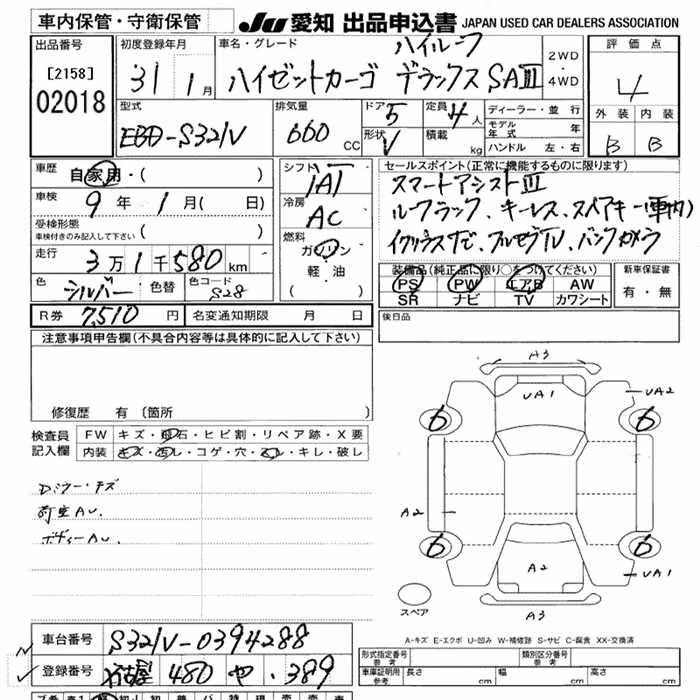 車内保管・守衛保管
JU 愛知 出品申込書 JAPAN USED CAR DEALERS ASSOCIATION
出品番号
[2158]
02018
初度登録年月
31 1月
車名・グレード
ハイルーフ
ハイゼットカーゴ デラックスSAⅢ
2WD
・
4WD
評価点
4
外装 内装
B B
型式
EBD-S321V
排気量
660 CC
ドア 5
形状 V
定員 4人
積載 kg
ディーラー・並行
モデル年式 年
ハンドル 左・右
車歴
自家用・( )
車検
9年 1月( 日)
受検形態
車検付きのみ記入して下さい( )
走行
3万1千580km
色 シルバー 色替
色コード S28
シフト
IAT
冷房
AC
燃料
ガソリン
軽・油
( )
セールスポイント(正常に機能するものに限ります)
スマートアシストⅢ
ルーフラック、キーレス、スペアキー(車内)
イクリプスナビ、フルセグTV、バックカメラ
装備品(純正品に限り○をつけてください)
PS PW エアB AW
SR ナビ TV カワシート
新車保証書
有・無
R券 7,510円 名変通知期限 月 日
検日品
注意事項申告欄(不具合内容等は具体的に記入して下さい)
修復歴 有〔箇所 〕
検査員
記入欄
FW キズ・飛石・ヒビ割・リペア跡・X要
内装 キズ・汚レ・コゲ・穴・スレ・キレ・破レ
Dミラー・キズ
荷室AU.
ボディーAU.
A3
UA1
UA2
6
6
A2
6
6
A2
UA1
A3
スペア
A-キズ E-エクボ U-凹み W-補修跡 S-サビ C-腐食 XX-交換済
車台番号 S321V-0394288
登録番号 名古屋 480 や・389
形式指定番号
参考
類別区分番号
参考
車庫証明用
参考
長さ 幅 高さ